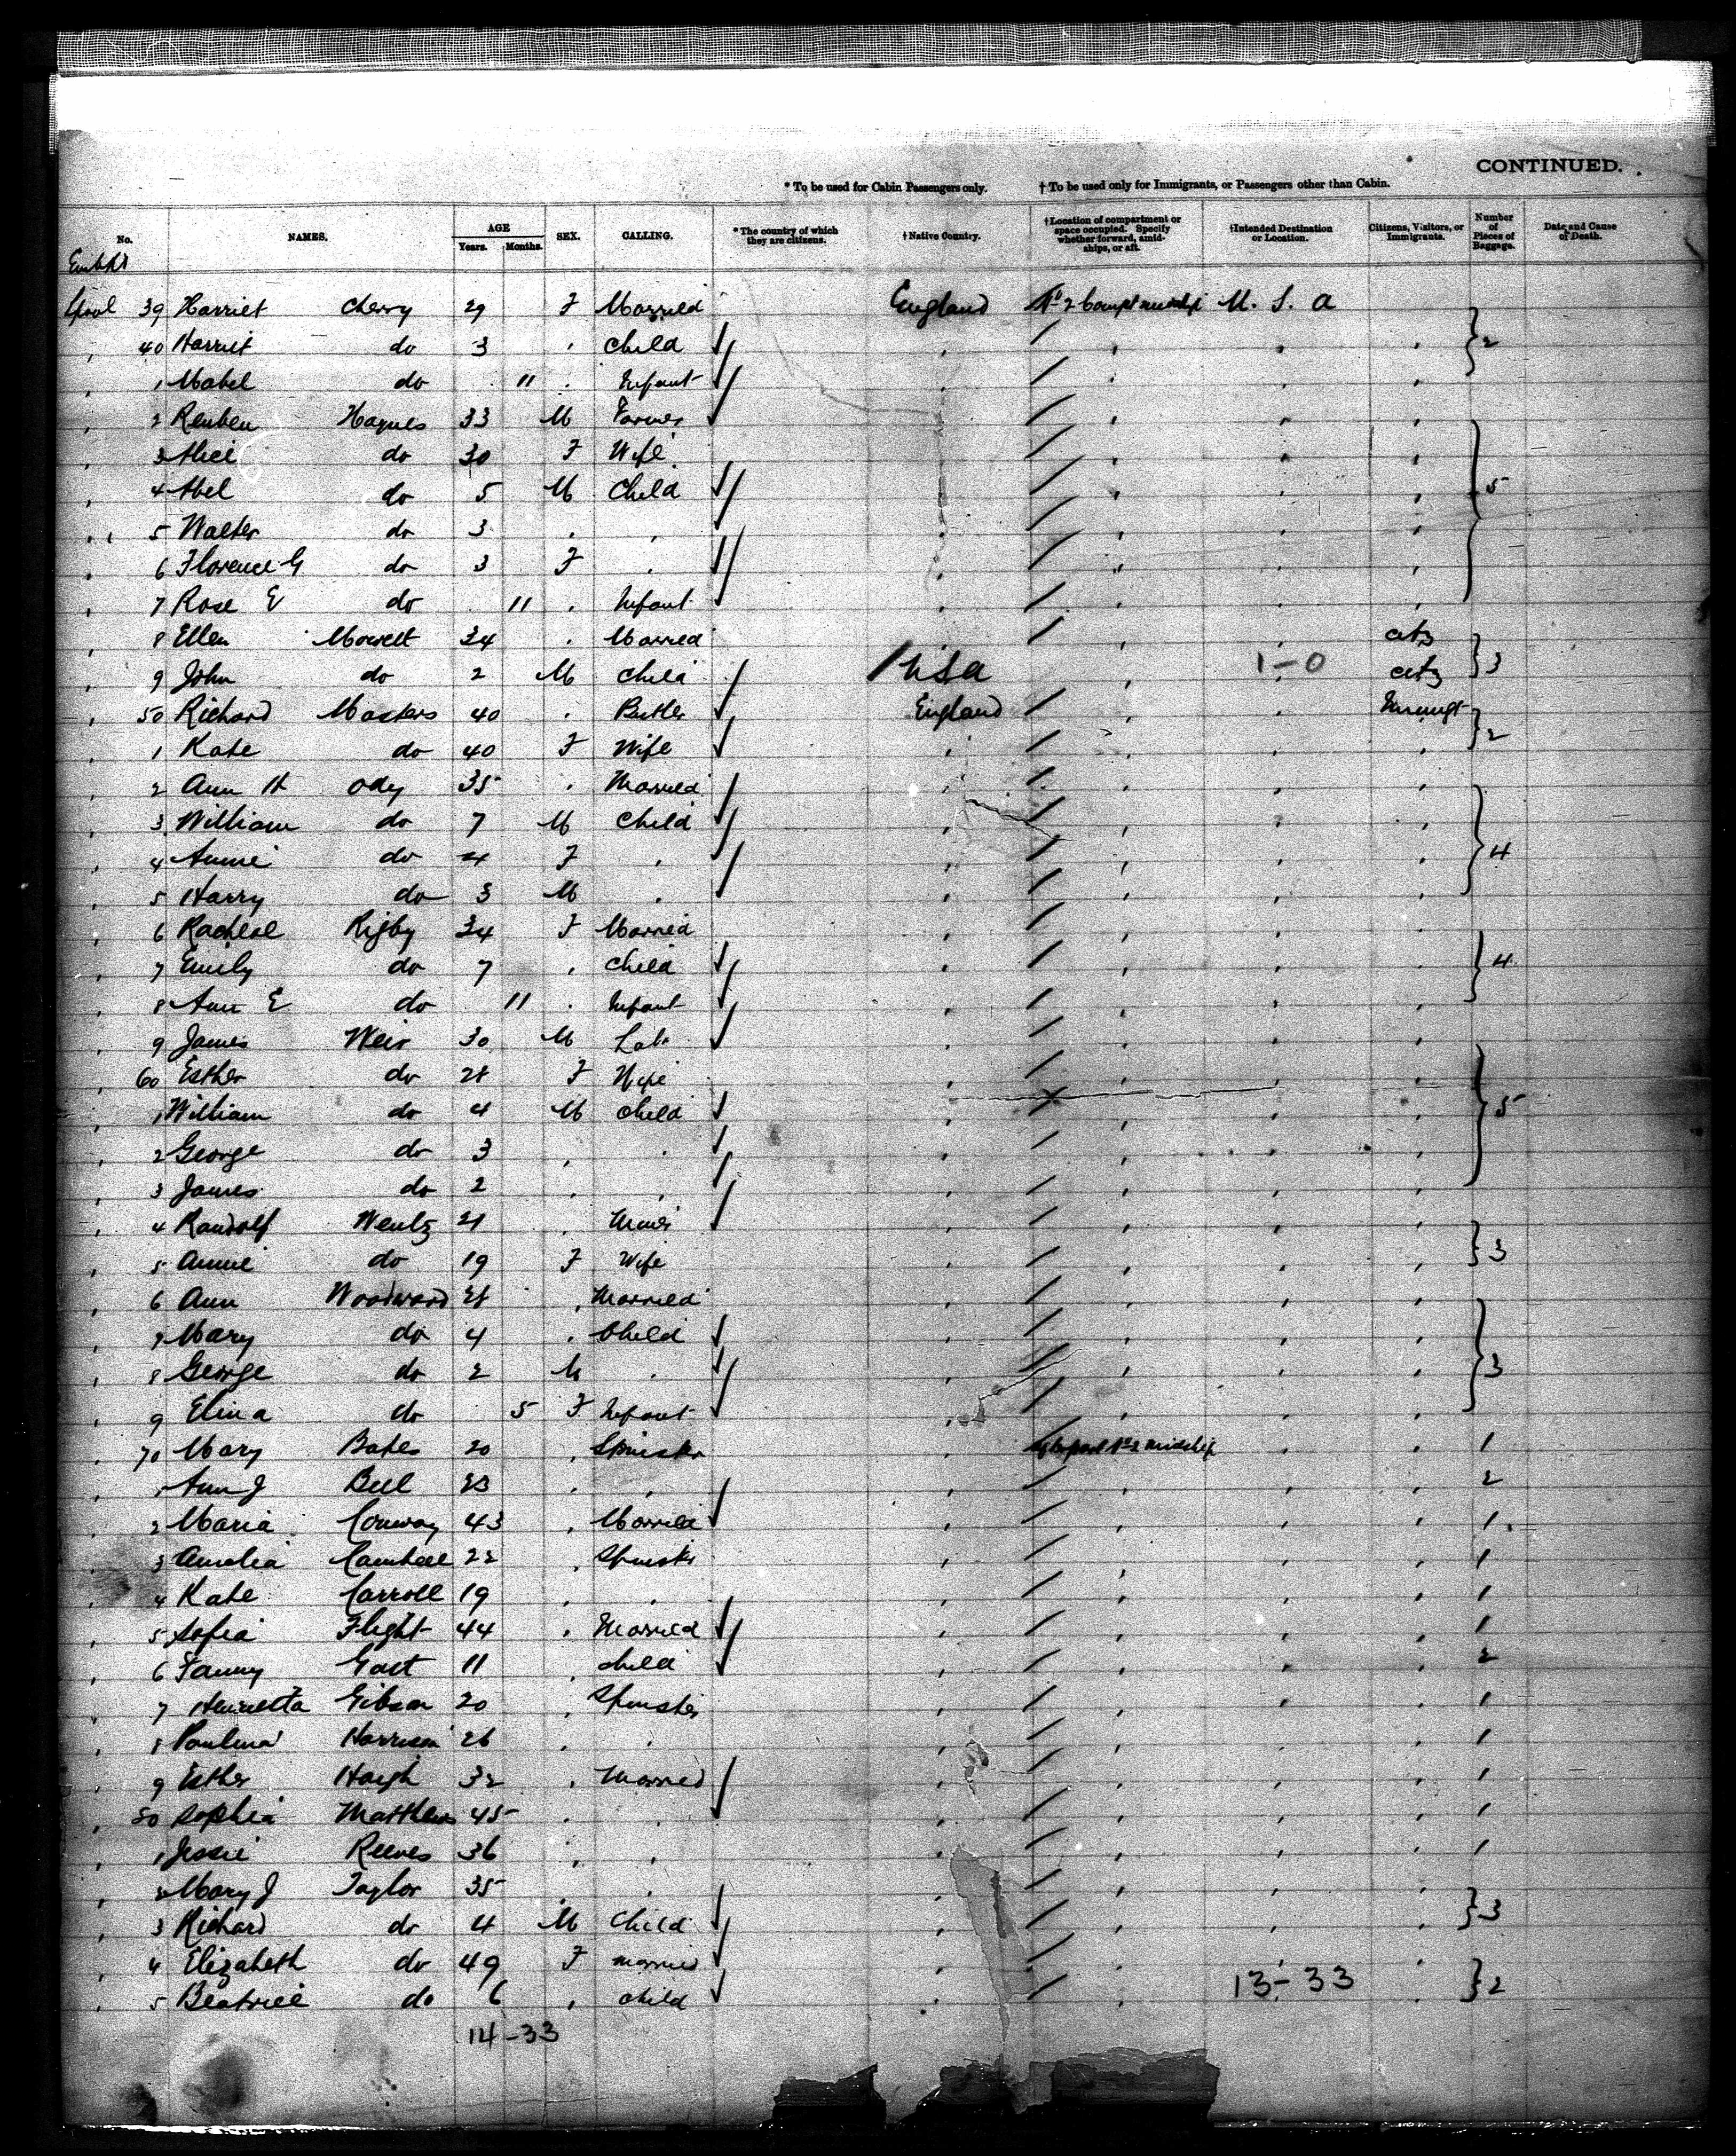 CONTINUED.
* To be used for Cabin Passengers only. † To be used only for Immigrants, or Passengers other than Cabin.
No. NAMES. AGE Years. Months. SEX. CALLING. * The country of which they are citizens. † Native Country. † Location of compartment or space occupied. Specify whether forward, amidships, or aft. † Intended Destination or Location. Citizens, Visitors, or Immigrants. Number of Pieces of Baggage. Date and Cause of Death.
Lpool 39 Harriet Cherry 29 F Married England No 2 Compt midship U. S. A
40 Harriet do 3 Child 2
1 Mabel do 11 Infant
2 Reuben Haynes 33 M Farmer
3 Alice do 30 F Wife
4 Abel do 5 M Child 5
5 Walter do 3
6 Florence G do 3 F
7 Rose E do 11 Infant
8 Ellen 34 Married citz
9 John do 2 M Child USA 1-0 citz 3
50 Richard Masters 40 Butler England Immigt
1 Kate do 40 F Wife 2
2 Ann H Ody 35 Married
3 William do 7 M Child
4 Annie do 4 F 4
5 Harry do 3 M
6 Racheal Rigby 34 F Married
7 Emily do 7 Child 4
8 Ann E do 11 Infant
9 James Weir 30 M Lab
60 Esther do F Wife
1 William do 4 M Child 5
2 George do 3
3 James do 2
4 Randolf Wentz 21 Miner
5 Annie do 19 F Wife 3
6 Ann Woodward Married
7 Mary do 4 Child
8 George do 2 M 3
9 do 5 F Infant
70 Mary Bates 20 Spinster midship 1
1 Ann J Bell 23 2
2 Maria Conway 43 Married 1
3 Amelia 22 Spinster 1
4 Kate Carroll 19 1
5 Sofia Flight 44 Married 1
6 Fanny 11 child 2
7 Henrietta Gibson 20 Spinster 1
8 Paulina Harrison 26 1
9 Esther Haigh 32 Married 1
80 Sophia Matthews 45 1
1 Jessie Reeves 36 1
2 Mary J Taylor 35
3 Richard do 4 M Child 3
4 Elizabeth do 49 F married
5 Beatrice do 6 child 13-33 2
14-33